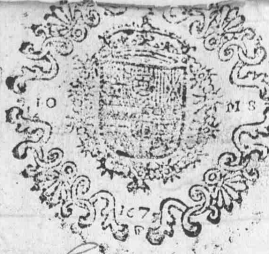 IO MS
167